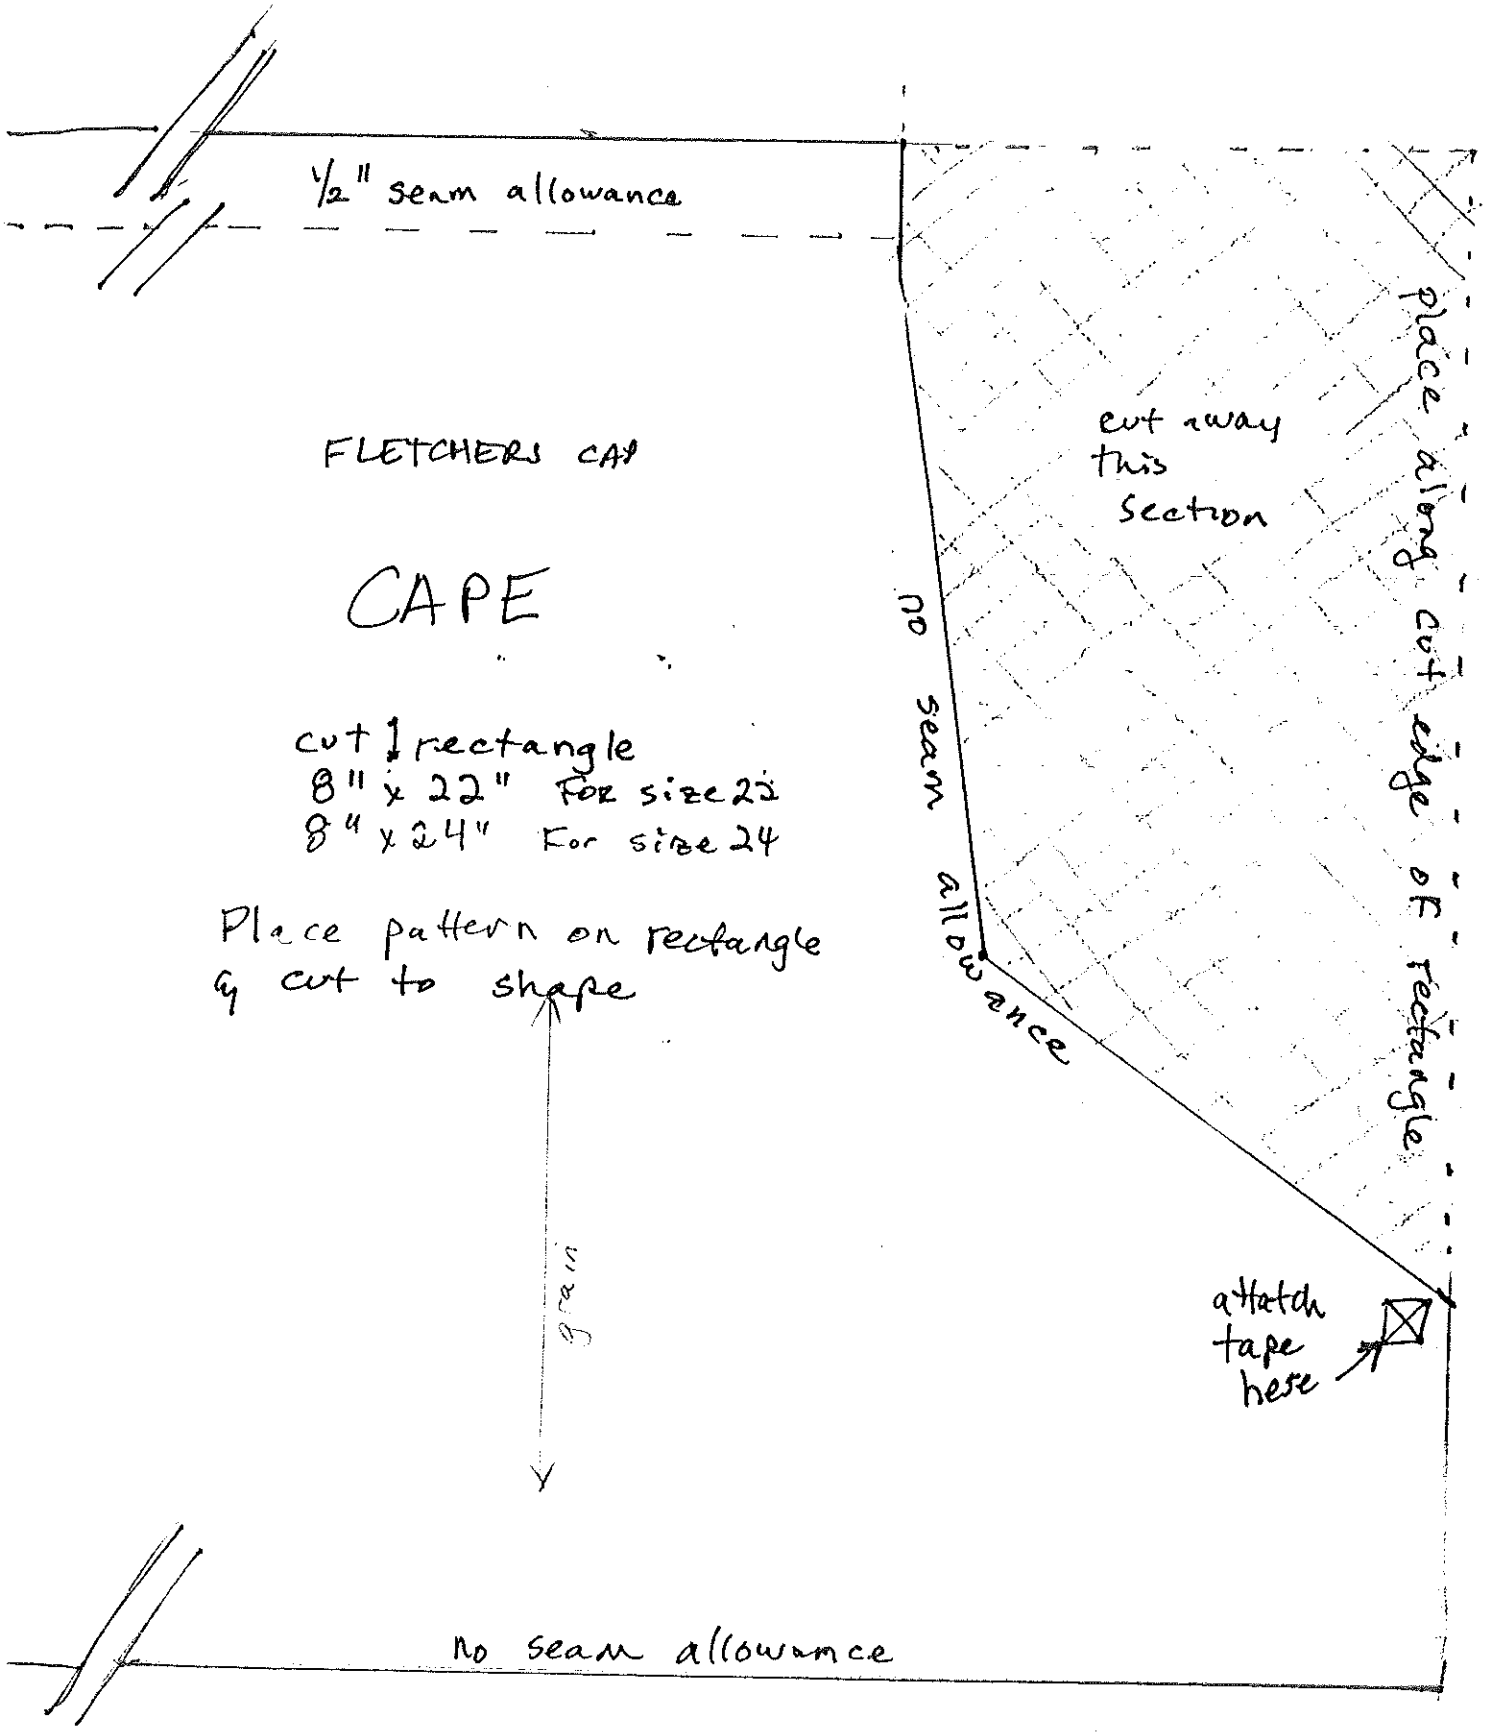 1/2" seam allowance
FLETCHERS CAP
CAPE
cut 1 rectangle
8" x 22" For size 22
8" x 24" For size 24
Place pattern on rectangle
& cut to shape
grain
no seam allowance
cut away
this
section
place along cut edge of rectangle
attatch
tape
here
no seam allowance